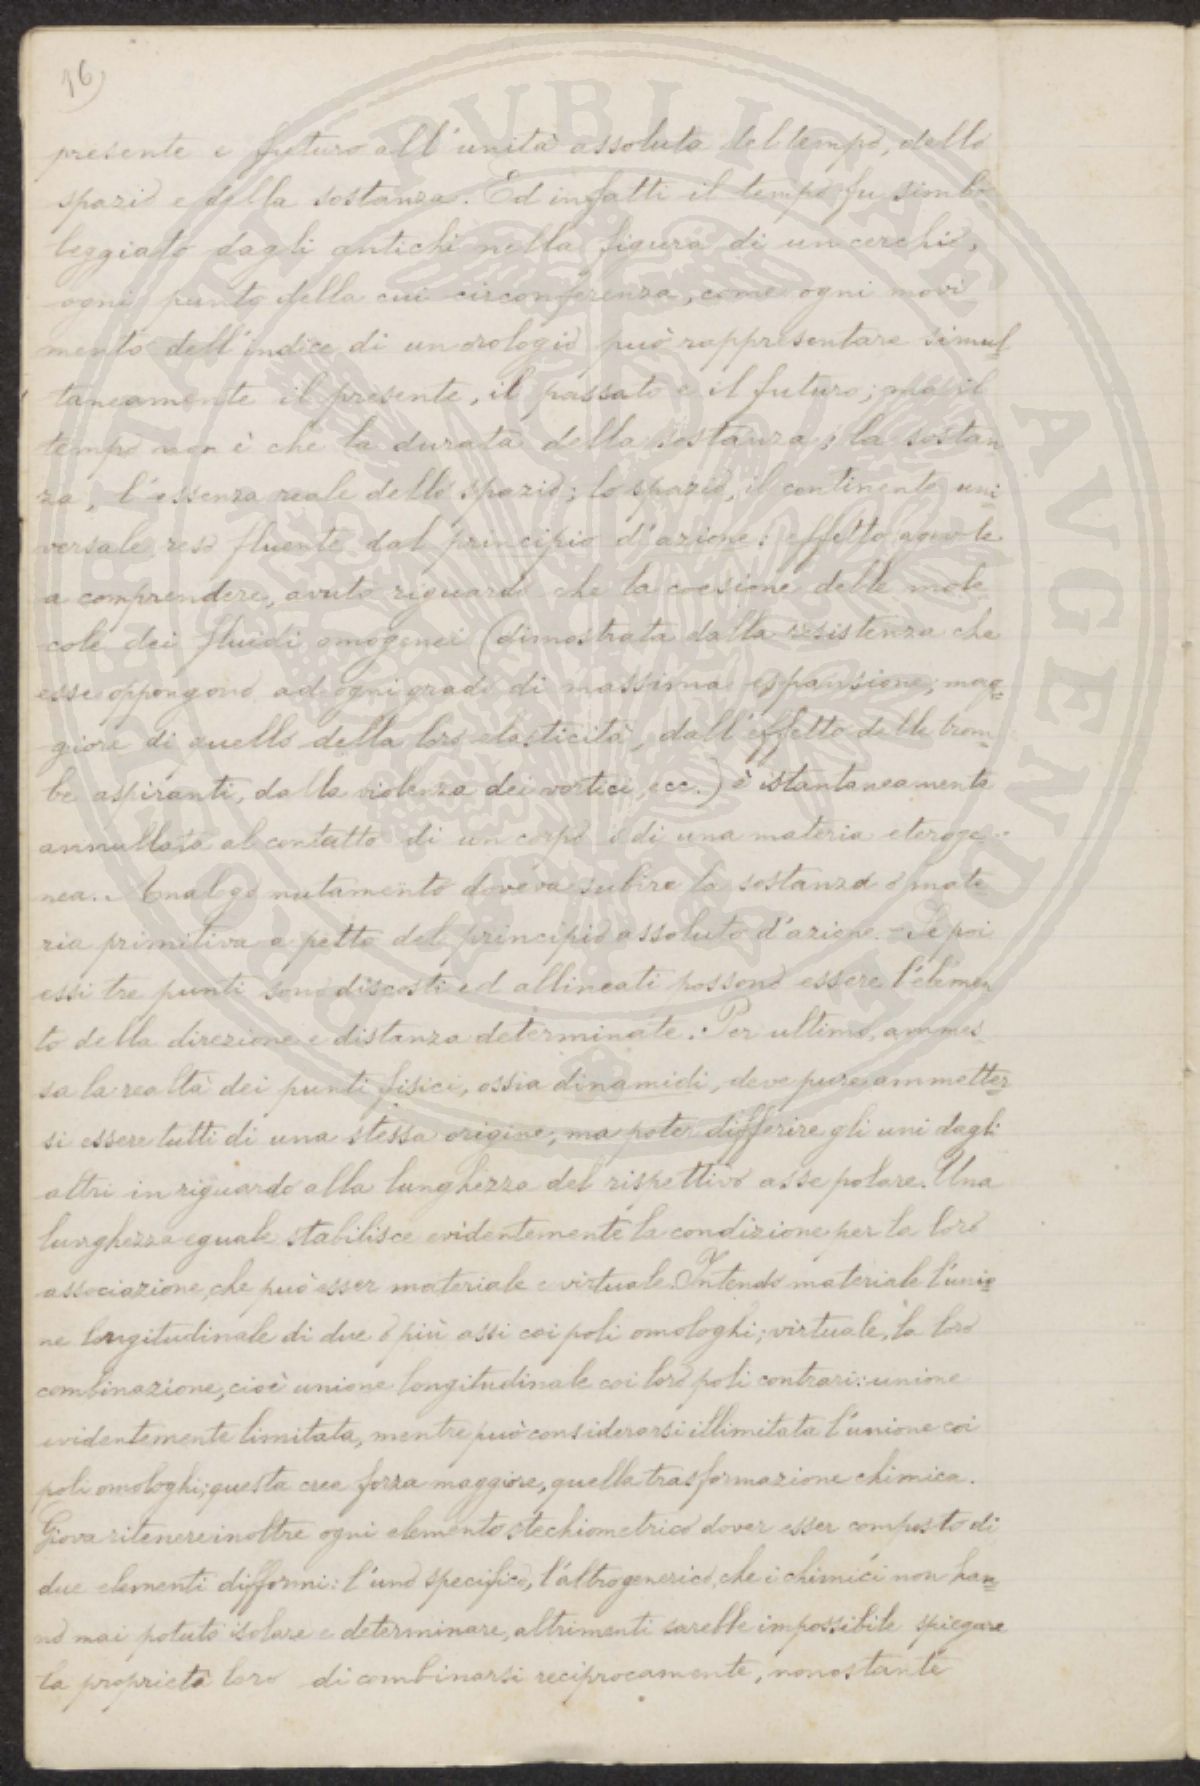 16)
presente e futuro all'unità assoluta del tempo, dello
spazio e della sostanza. Ed infatti il tempo fu simbo
leggiato dagli antichi nella figura di un cerchio,
ogni punto della cui circonferenza, come ogni movi
mento dell'indice di un orologio può rappresentare simul
taneamente il presente, il passato e il futuro; ma il
tempo non è che la durata della sostanza; la sostan
za, l'essenza reale dello spazio; lo spazio, il continente uni
versale reso fluente dal principio d'azione: effetto agevole
a comprendere, avuto riguardo che la coesione delle mole
cole dei fluidi omogenei (dimostrata dalla resistenza che
esse oppongono ad ogni grado di massima espansione; mag=
giore di quello della loro elasticità, dall'effetto delle trom=
be aspiranti, dalla violenza dei vortici, ecc.) è istantaneamente
annullata al contatto di un corpo o di una materia eteroge=
nea.. Analogo mutamento doveva subire la sostanza o mate
ria primitiva a petto del principio assoluto d'azione. - Se poi
essi tre punti sono discosti ed allineati possono essere l'elemen
to della direzione e distanza determinate. Per ultimo, ammes
sa la realtà dei punti fisici, ossia dinamidi, deve pure ammetter
si essere tutti di una stessa origine; ma poter differire gli uni dagli
altri in riguardo alla lunghezza del rispettivo asse polare. Una
lunghezza eguale stabilisce evidentemente la condizione per la loro
associazione, che può esser materiale e virtuale. Intendo materiale l'unio=
ne longitudinale di due o più assi coi poli omologhi; virtuale, la loro
combinazione, cioè unione longitudinale coi loro poli contrari: unione
evidentemente limitata, mentre può considerarsi illimitata l'unione coi
poli omologhi; questa crea forza maggiore, quella trasformazione chimica.
Giova ritenere inoltre ogni elemento stechiometrico dover esser composto di
due elementi difformi: l'uno specifico, l'altro generico, che i chimici non han=
no mai potuto isolare e determinare, altrimenti sarebbe impossibile spiegare
la proprietà loro di combinarsi reciprocamente, nonostante
PUBLICAE AVGENDAE